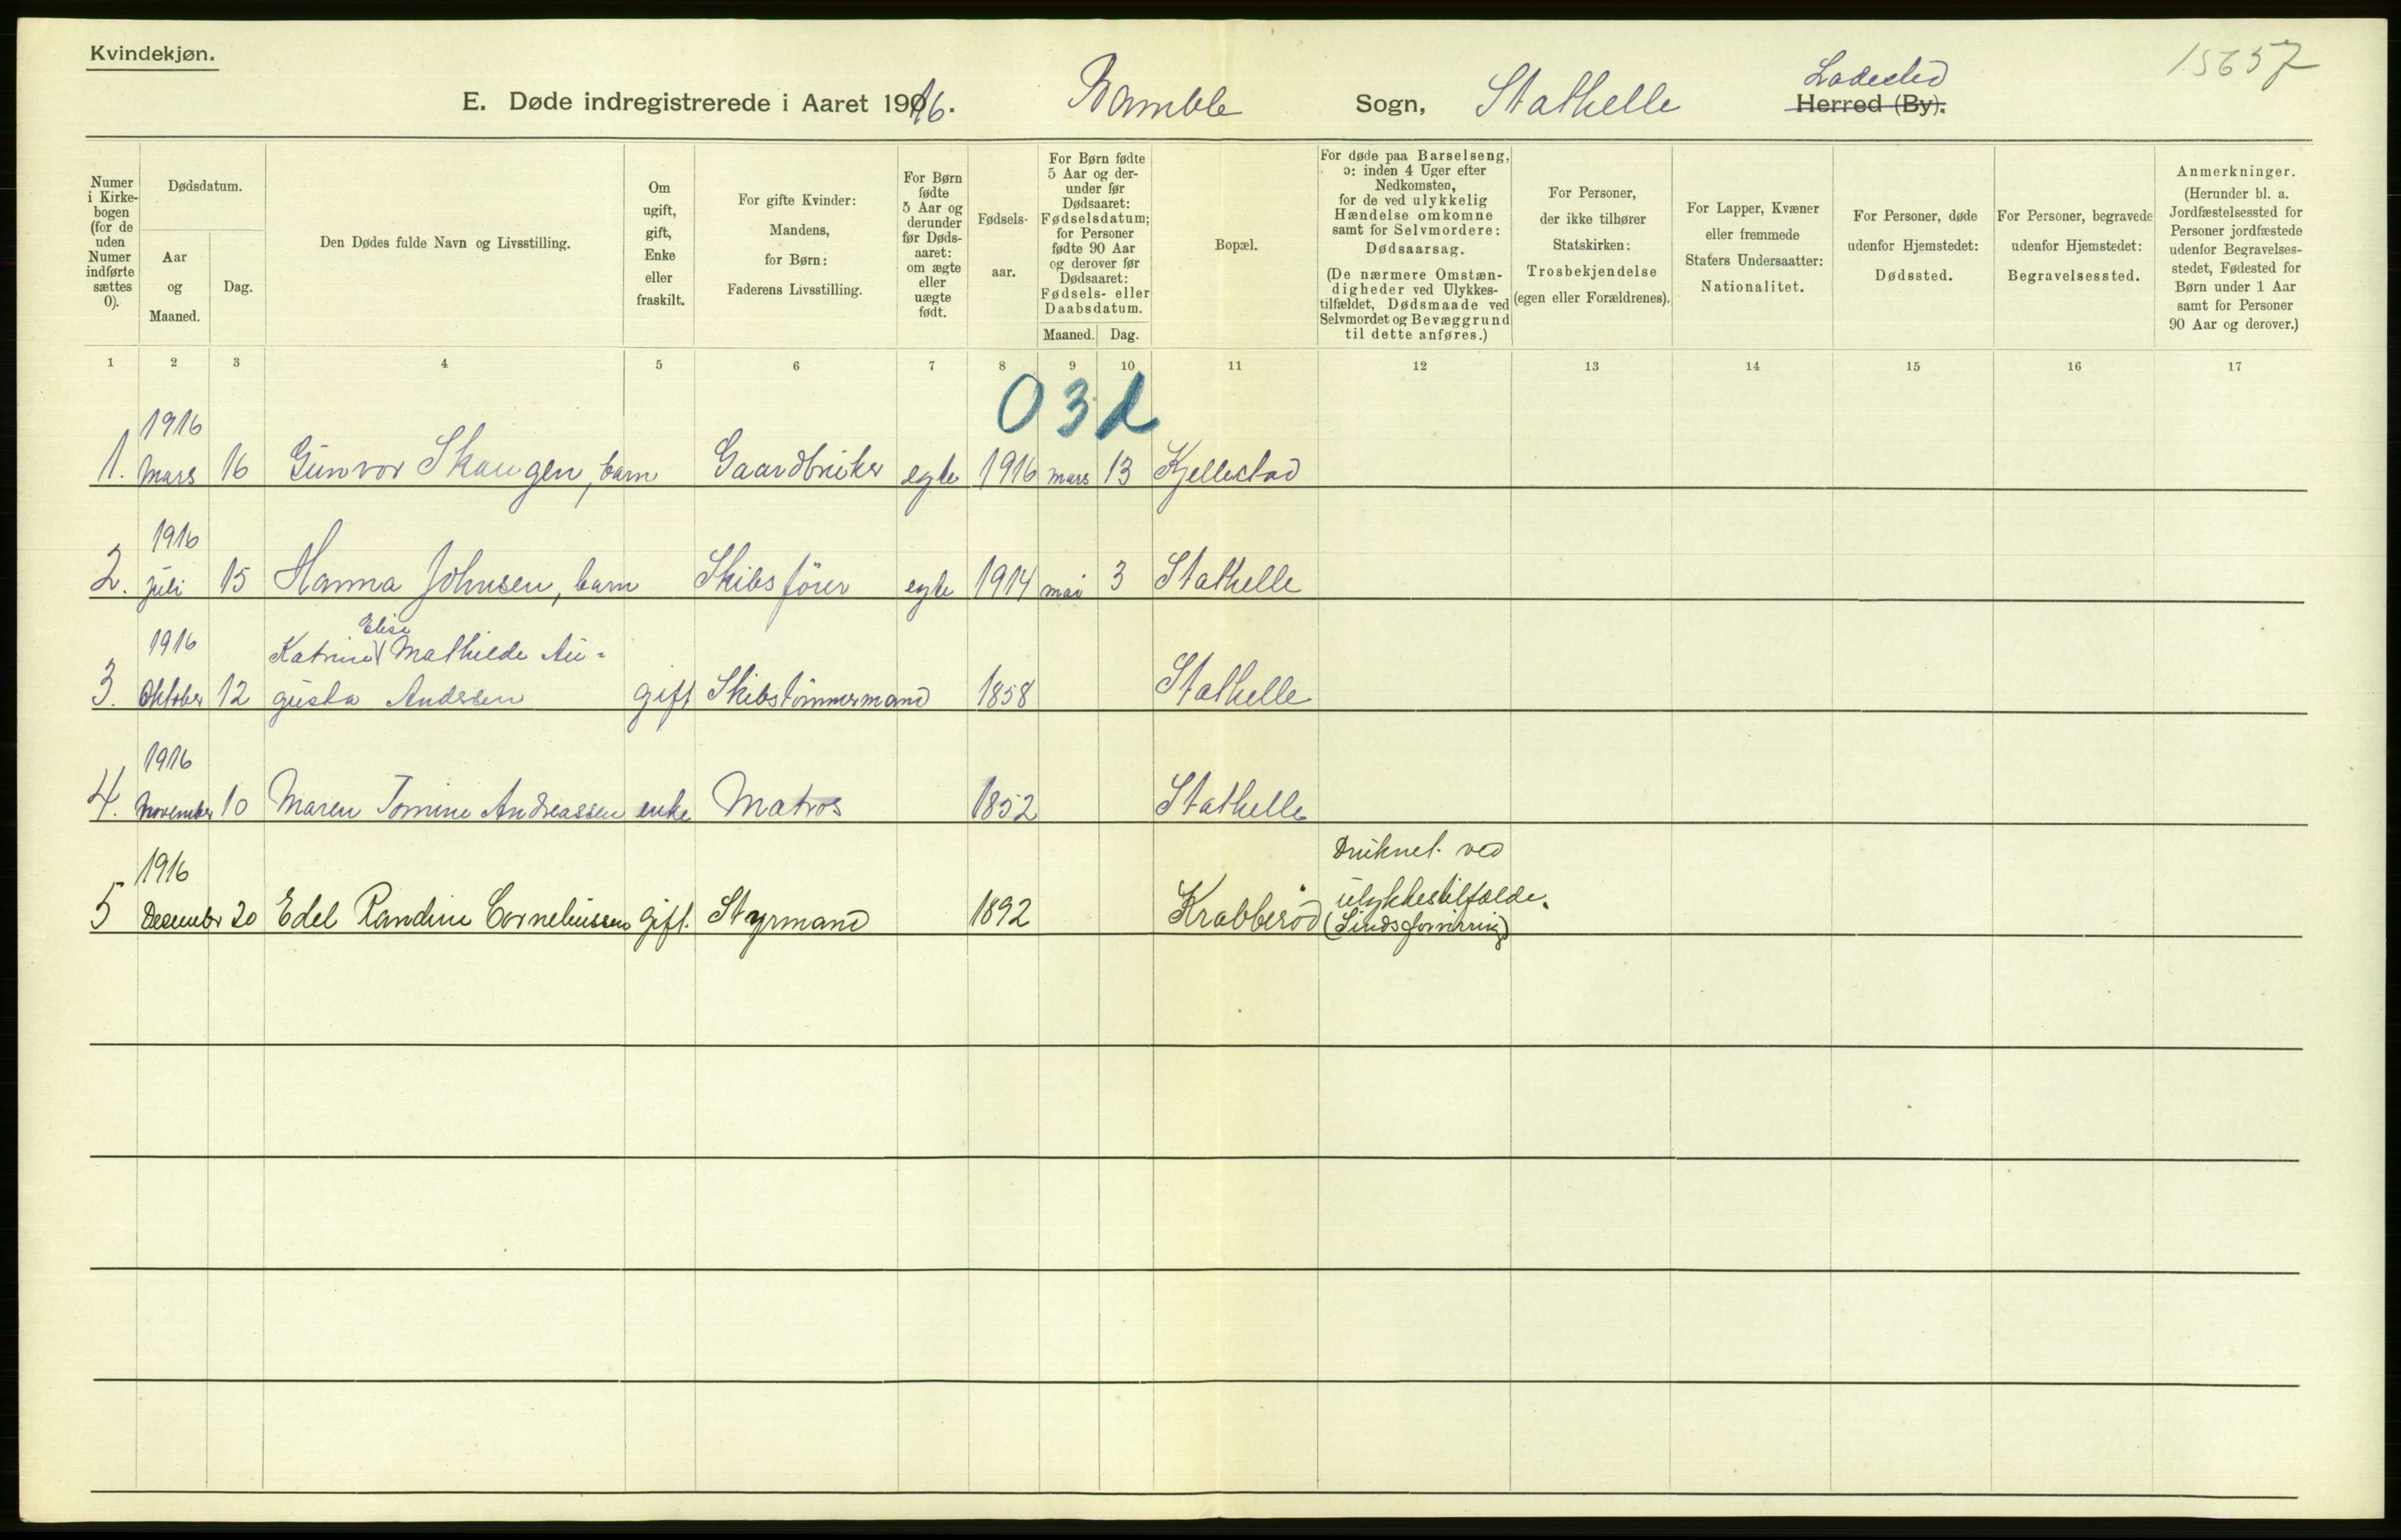 Kvindekjøn.
15657
E. Døde indregistrerede i Aaret 1916. Bamble Sogn, Stathelle Ladested Herred (By).
Numer i Kirkebogen (for de uden Numer indførte sættes 0).
Dødsdatum.
Aar og Maaned.
Dag.
Den Dødes fulde Navn og Livsstilling.
Om ugift, gift, Enke eller fraskilt.
For gifte Kvinder: Mandens, for Børn: Faderens Livsstilling.
For Børn fødte 5 Aar og derunder før Dødsaaret: om ægte eller uægte født.
Fødselsaar.
For Børn fødte 5 Aar og derunder før Dødsaaret: Fødselsdatum; for Personer fødte 90 Aar og derover før Dødsaaret: Fødsels- eller Daabsdatum.
Maaned. Dag.
Bopæl.
For døde paa Barselseng, ɔ: inden 4 Uger efter Nedkomsten, for de ved ulykkelig Hændelse omkomne samt for Selvmordere: Dødsaarsag. (De nærmere Omstændigheder ved Ulykkestilfældet, Dødsmaade ved Selvmordet og Bevæggrund til dette anføres.)
For Personer, der ikke tilhører Statskirken: Trosbekjendelse (egen eller Forældrenes).
For Lapper, Kvæner eller fremmede Staters Undersaatter: Nationalitet.
For Personer, døde udenfor Hjemstedet: Dødssted.
For Personer, begravede udenfor Hjemstedet: Begravelsessted.
Anmerkninger. (Herunder bl. a. Jordfæstelsessted for Personer jordfæstede udenfor Begravelsesstedet, Fødested for Børn under 1 Aar samt for Personer 90 Aar og derover.)
1 2 3 4 5 6 7 8 9 10 11 12 13 14 15 16 17
03
1916
1. Mars 16 Gunvor Skaugen, barn Gaardbruker egte 1916 mars 13 Kjellestad
1916
2. juli 15 Hanna Johnsen, barn Skibsfører egte 1914 mai 3 Stathelle
Elise
1916 Katrine Mathilde Au-
3. Oktober 12 gusta Andersen gift Skibstømmermand 1858 Stathelle
1916
4. November 10 Maren Tomine Andreassen enke Matros 1852 Stathelle
1916 Druknet ved
ulykkestilfælde.
5 December 20 Edel Randine Corneliussen gift. Styrmand 1892 Krabberød (Sindsforvirring)